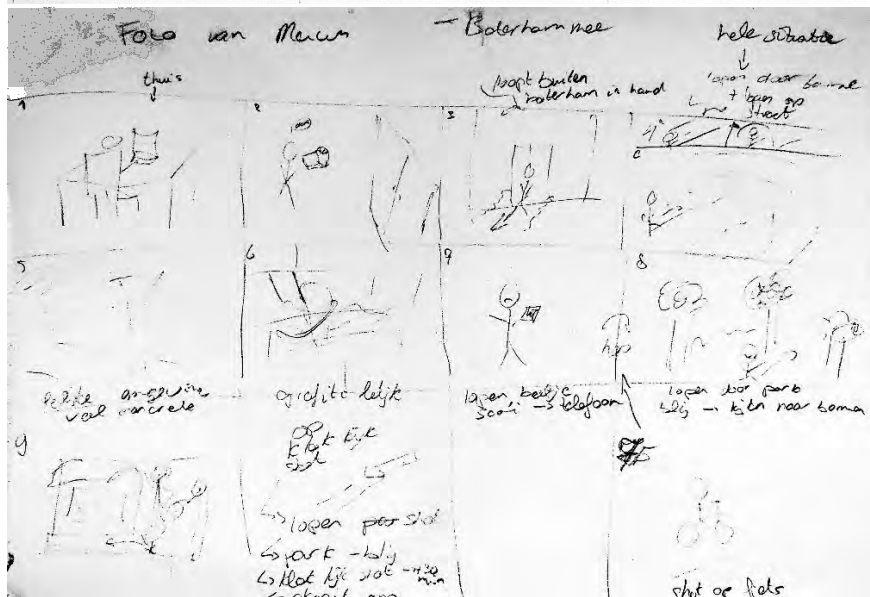 Foto van Mercur - Boterham mee hele situatie
thuis
loopt buiten
boterham in hand
lopen door
+ lopen op
street
1
2
3
5
6
7
8
omgeving
veel concrete
grafiti lelijk
lopen, beetje
→ telefoon
lopen door park
blij → kijken naar bomen
9
op
klok kijk
shot
↳ lopen paar shot
↳ park - blij
↳ klok kijk shot → +30
min
shot op fiets